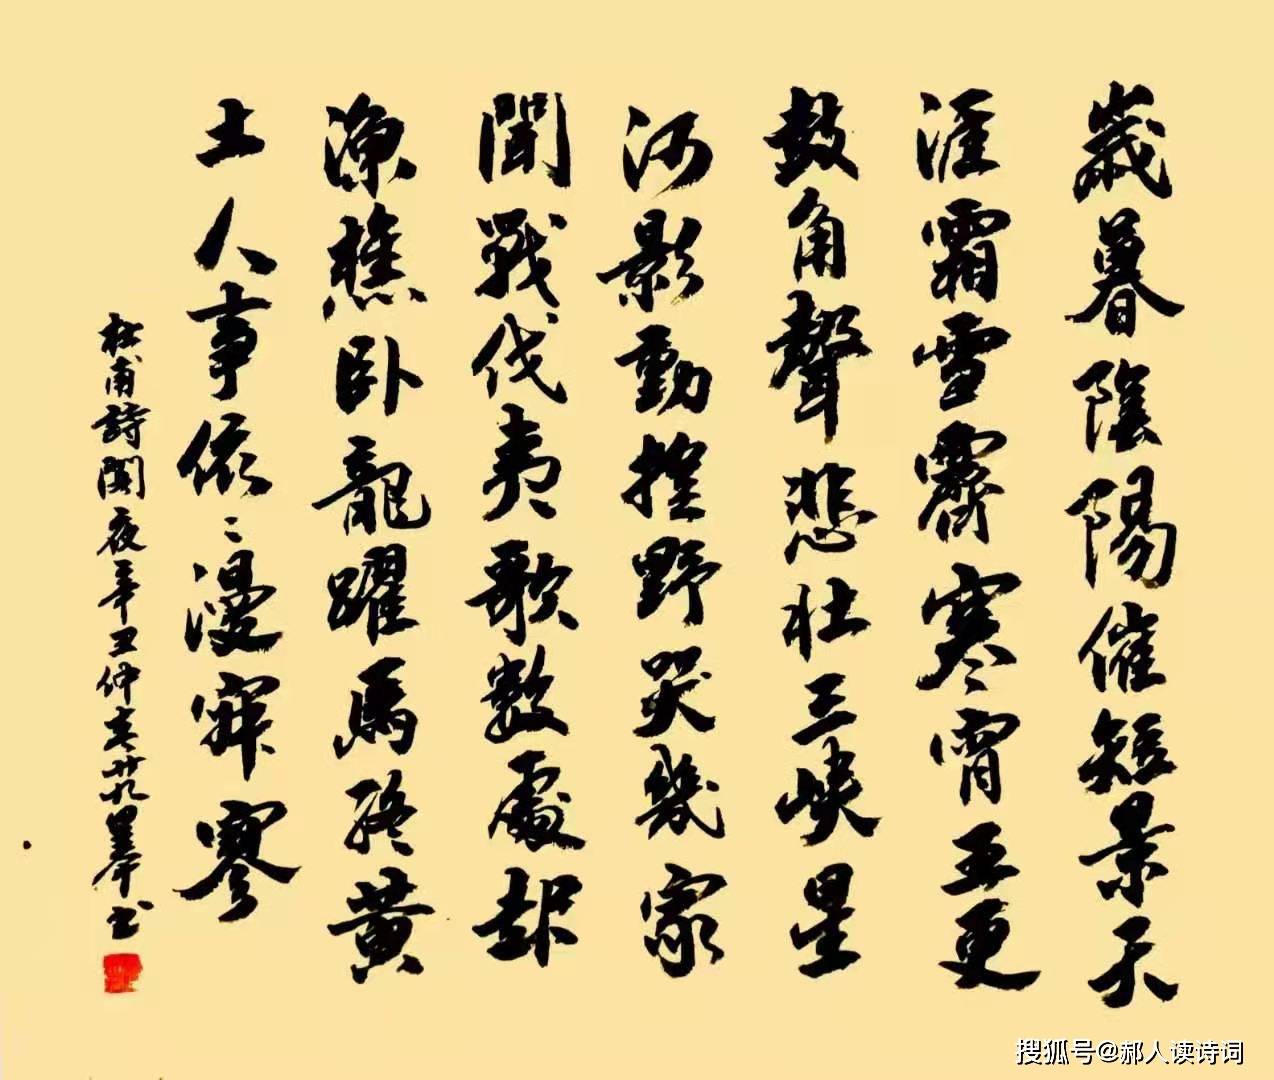 歲暮陰陽催短景天
涯霜雪霽寒宵五更
鼓角聲悲壯三峽星
河影動搖野哭幾家
聞戰伐夷歌數處起
漁樵卧龍躍馬終黃
土人事依〻漫寂寥
杜甫詩閣夜辛丑仲廿九书
搜狐号@郝人读诗词